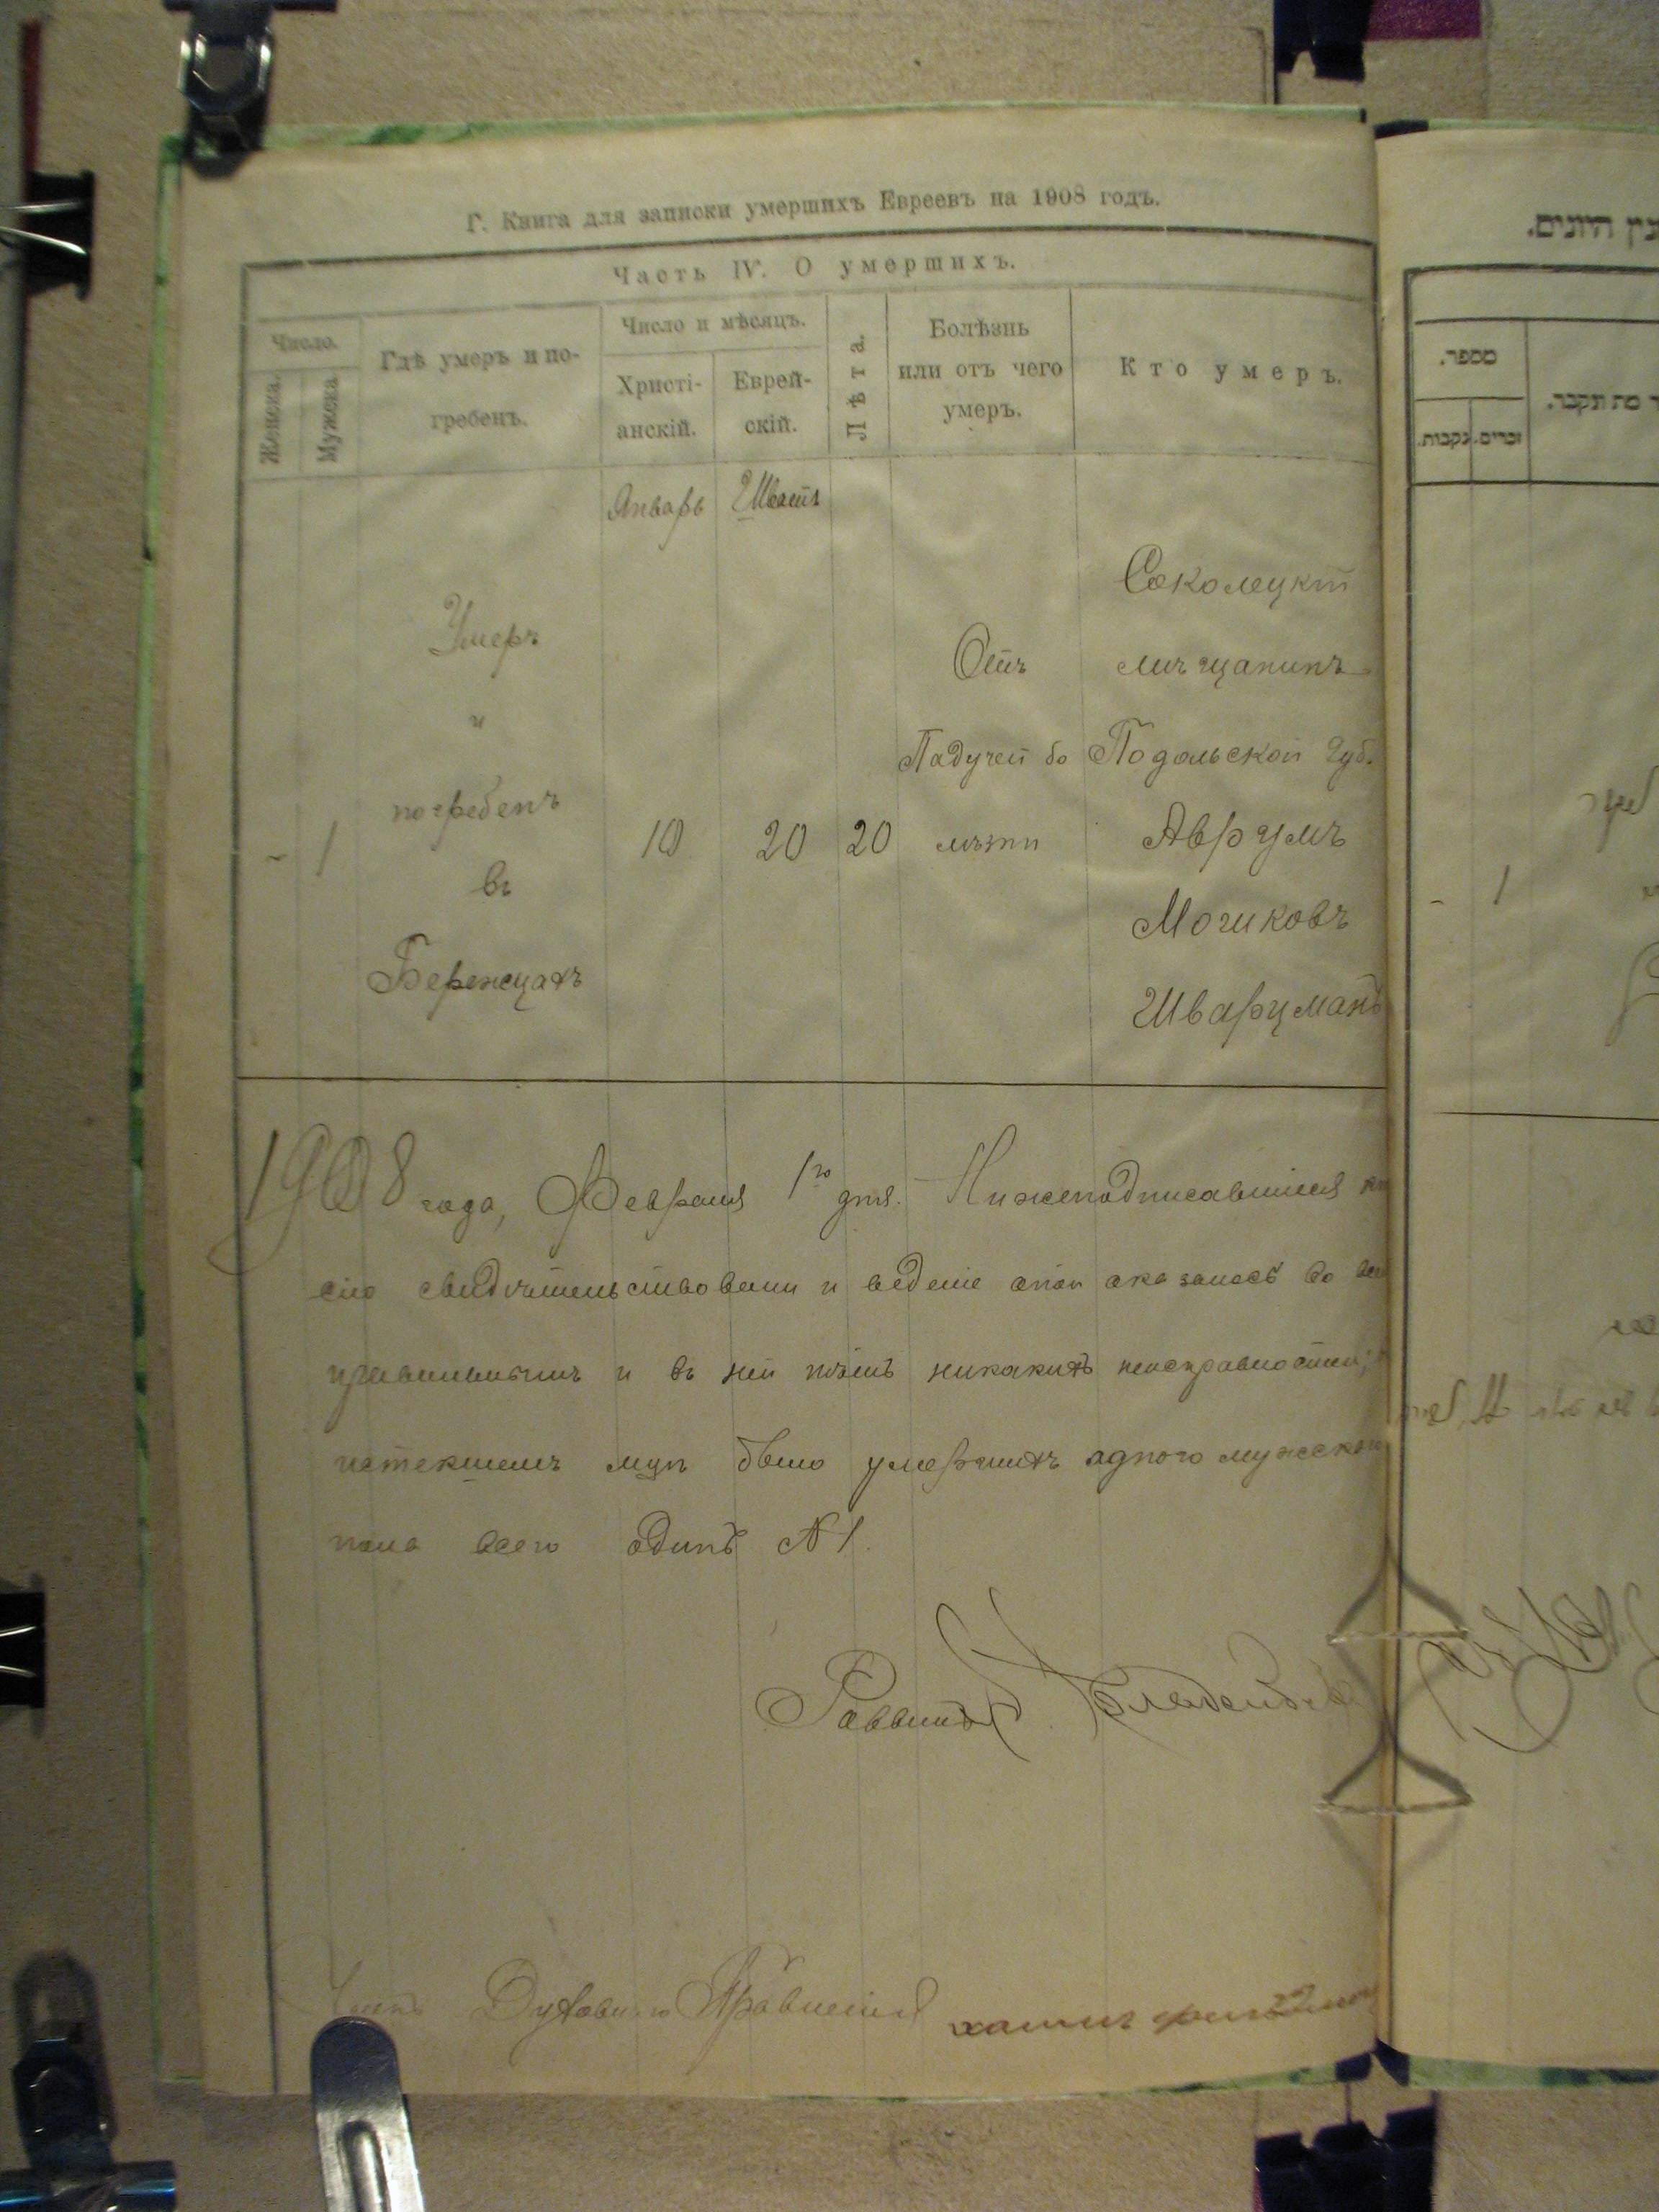 Г. Книга для записки умершихъ Евреевъ на 1908 годъ.
Часть IV. О умершихъ.
Число.
Женска.
Мужска.
Гдѣ умеръ и по-
гребенъ.
Число и мѣсяцъ.
Христі-
анскій.
Еврей-
скій.
Лѣта.
Болѣзнь
или отъ чего
умеръ.
Кто умеръ.
Январь Шватъ
- 1
Умеръ
и
погребенъ
въ
Бережцахъ
10 20 20
Отъ
Падучей бо
лѣзни
Соколецкій
мѣщанинъ
Подольской Губ.
Аврумъ
Мошковъ
Шварцманъ
1908 года, Февраля 1го дня. Нижеподписавшіеся
сію свидѣтельствовали и веденіе оной оказалось во
правильнымъ и въ ней нѣтъ никакихъ неисправностей;
истекшемъ мцѣ было умершихъ одного мужскаго
пола всего одинъ №1.
Раввинъ
Членъ Духовнаго Правленія
מספר.
זכרים.
נקבות.
מת ונקבר.
- 1